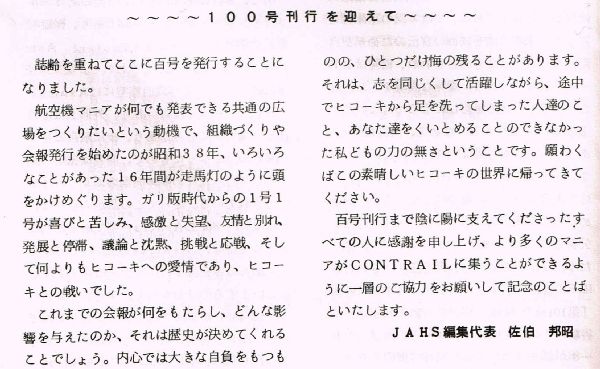 ～～～～１００号刊行を迎えて～～～～
誌齢を重ねてここに百号を発行することに
なりました。
航空機マニアが何でも発表できる共通の広
場をつくりたいという動機で、組織づくりや
会報発行を始めたのが昭和３８年、いろいろ
なことがあった１６年間が走馬灯のように頭
をかけめぐります。ガリ版時代からの１号１
号が喜びと苦しみ、感激と失望、友情と別れ、
発展と停滞、議論と沈黙、挑戦と応戦、そし
て何よりもヒコーキへの愛情であり、ヒコー
キとの戦いでした。
これまでの会報が何をもたらし、どんな影
響を与えたのか、それは歴史が決めてくれる
ことでしょう。内心では大きな自負をもつも
のの、ひとつだけ悔の残ることがあります。
それは、志を同じくして活躍しながら、途中
でヒコーキから足を洗ってしまった人達のこ
と、あなた達をくいとめることのできなかっ
た私どもの力の無さということです。願わく
ばこの素晴しいヒコーキの世界に帰ってきて
ください。
百号刊行まで陰に陽に支えてくださったす
べての人に感謝を申し上げ、より多くのマニ
アがＣＯＮＴＲＡＩＬに集うことができるよ
うに一層のご協力をお願いして記念のことば
といたします。
ＪＡＨＳ編集代表　佐伯　邦昭